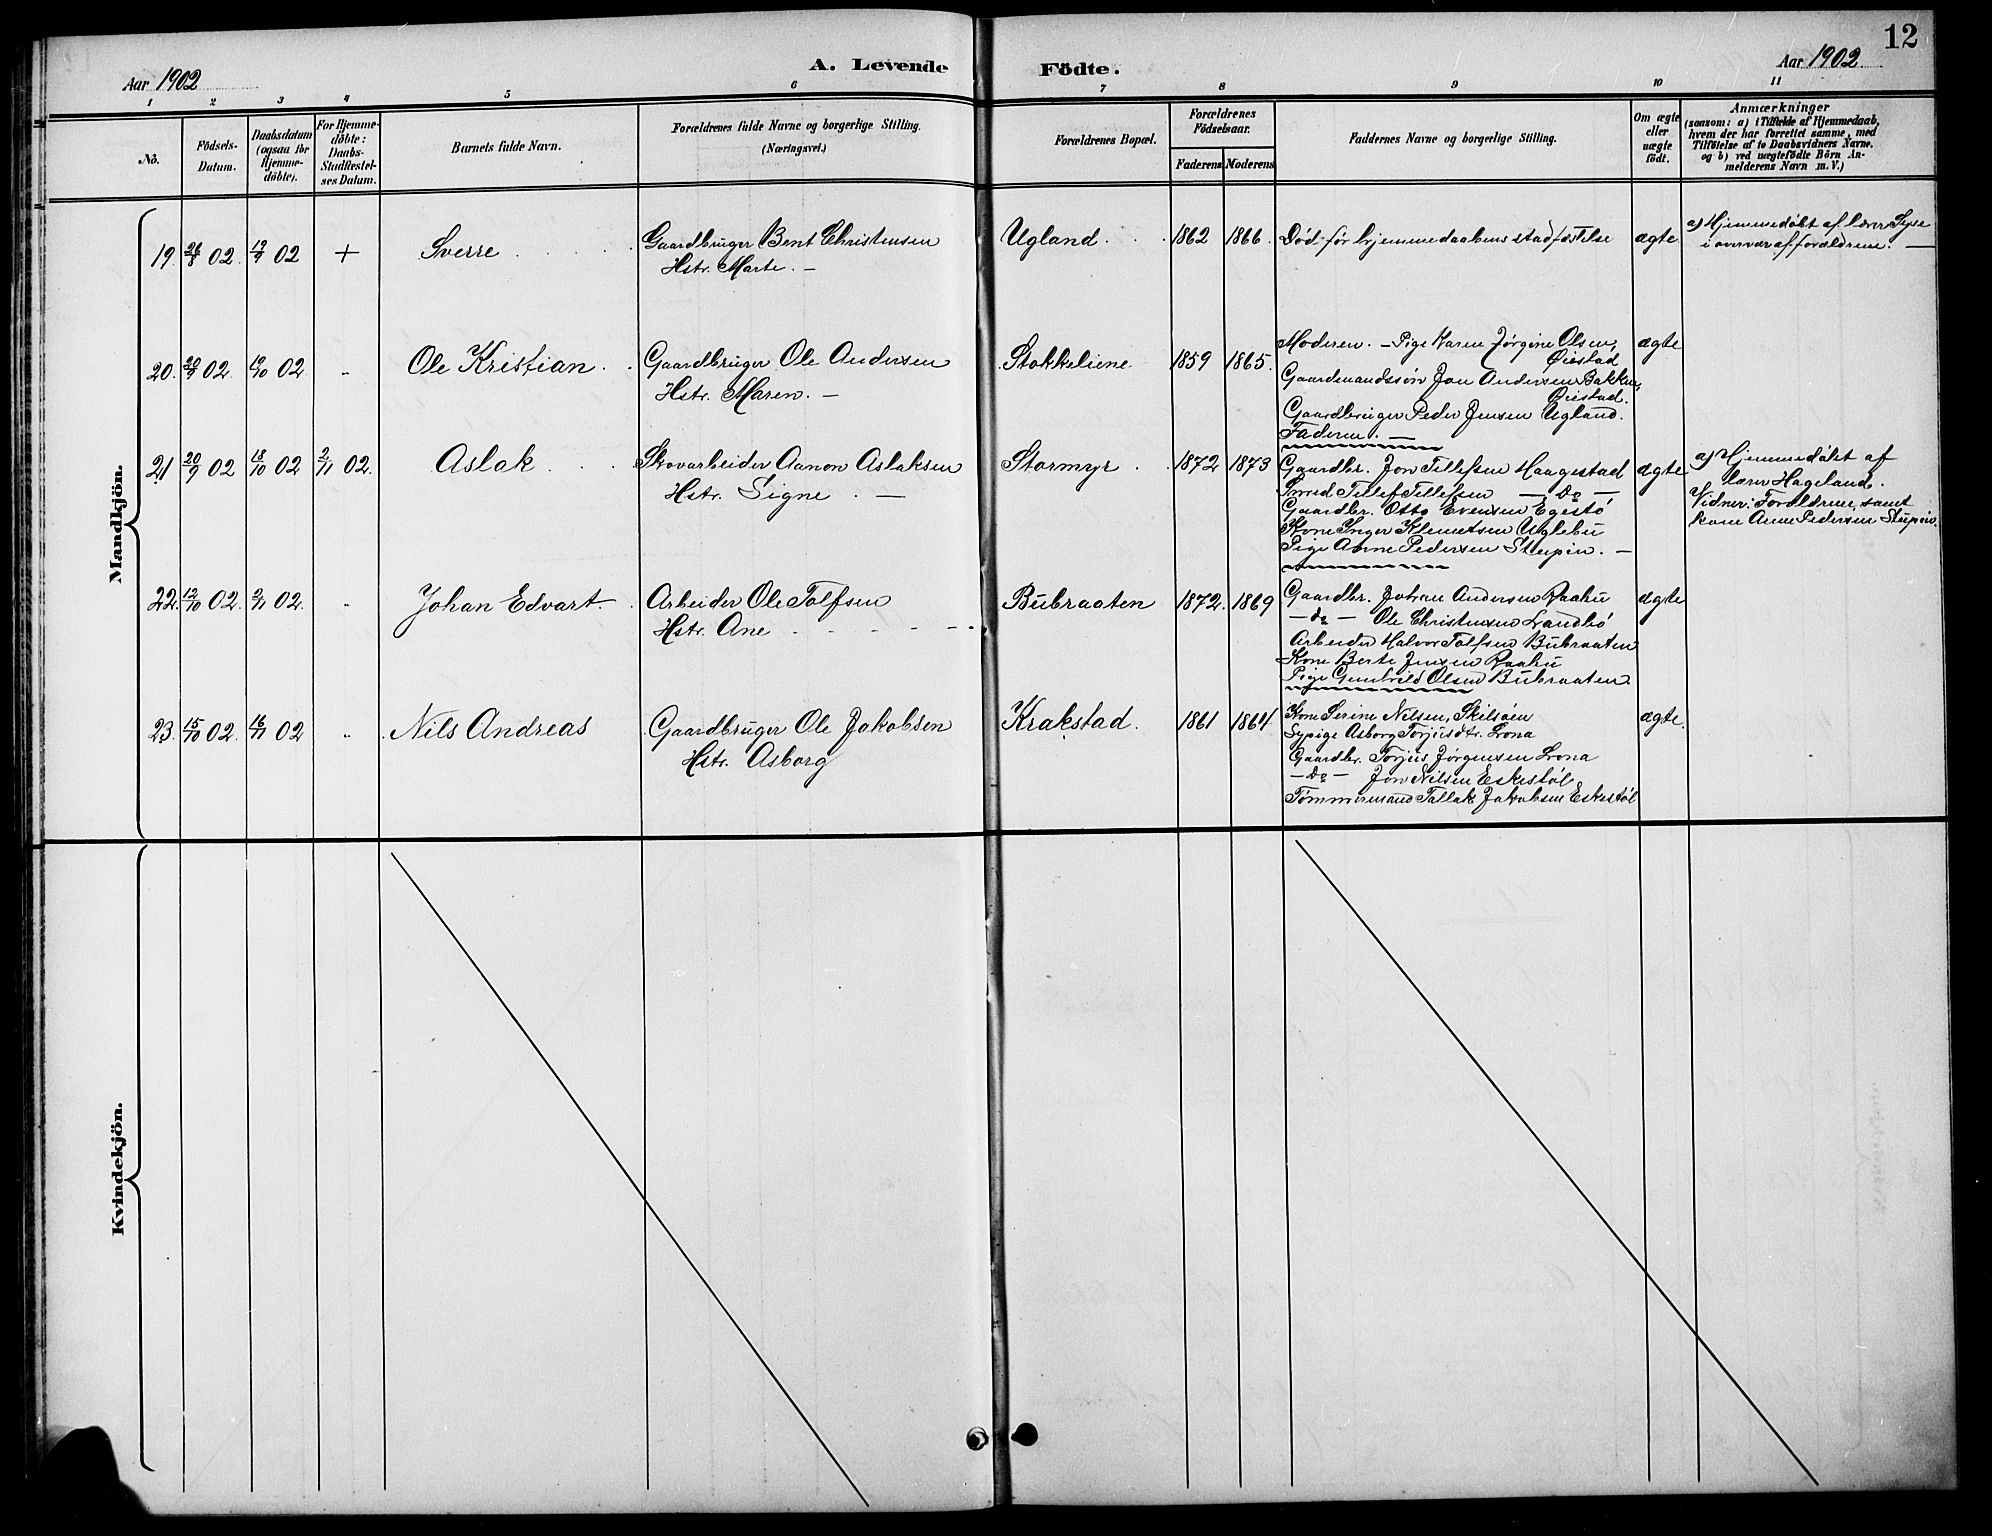 12
Aar 1902
A. Levende Födte.
Aar 1902
1 2 3 4 5 6 7 8 9 10 11
No.
Födsels-Datum.
Daabsdatum (ogsaa for Hjemme-döbte).
For Hjemme-döbte: Daabs-Stadfæstel-ses Datum.
Barnets fulde Navn.
Forældrenes fulde Navne og borgerlige Stilling.
(Næringsvei.)
Forældrenes Bopæl.
Forældrenes Födselsaar.
Faderens Moderens
Faddernes Navne og borgerlige Stilling.
Om ægte eller uægte födt.
Anmærkninger
(saasom: a) i Tilfælde af Hjemmedaab,
hvem der har forrettet samme, med
Tilföielse af to Daabsvidners Navne.
og b) ved uægtefödte Börn An-
melderens Navn m.V.)
Mandkjön.
19. 26/8 02. 19/9 02 + Sverre Gaardbruger Bent Christensen
Hstr. Marte. —
Ugland. 1862 1866. Död før hjemmedaabens stadfæstelse ægte.
a) Hjemmedøbt af lærer
i overvær af forældrene. —
20. 29/9 02 19/10 02 " Ole Kristian. Gaardbruger Ole Andersen
Hstr. Maren. —
Stokkeliene 1859 1865. Moderen. — Pige Karen Jørgine Olsen, ægte
Øiestad
Gaardmandssøn Jon Andersen Bakken,
Øiestad.
Gaardbruger Peder Jensen Ugland.
Faderen. —
21. 20/9 02 18/10 02 2/11 02. Aslak Skovarbeider Aanon Aslaksen
Hstr. Signe. —
Stormyr 1872 1873 Gaardbr. Jon Tellefsen Haagestad ægte
Tellef Tellefsen — do —
Gaardbr. Otto Evensen Egestö
Kone Inger Klemetsen Uglebu
Pige Anne Pedersen
a) Hjemmedøbt af
lærer Hageland.
Vidner: Forældrene, samt
kone Anne Pedersen
22. 12/10 02. 2/11 02. " Johan Edvart. Arbeider Ole Tolfsen
Hstr. Ane
Bubraaten 1872. 1869 Gaardbr. Johan Andersen Raabu ægte
— do — Ole Christensen Landbö
Arbeider Halvor Tolfsen Bubraaten
Kone Berte Jensen Raabu
Pige Gunhild Olsen Bubraaten.
23. 15/10 02. 16/11 02 " Nils Andreas Gaardbruger Ole Jakobsen
Hstr. Asborg
Krakstad. 1861 1864 Kone Serine Nilsen, Skilsöen ægte.
Sypige Asborg Torjusdtr. Lona
Gaardbr. Torjus Jørgensen Lona
— do — Jon Nilsen Eskestöl
Tömmermand Tallak Jakobsen Eskestöl
Kvindekjön.